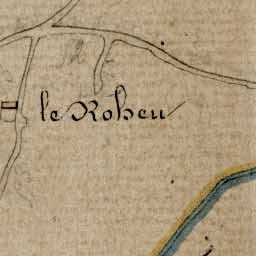 le Roheu